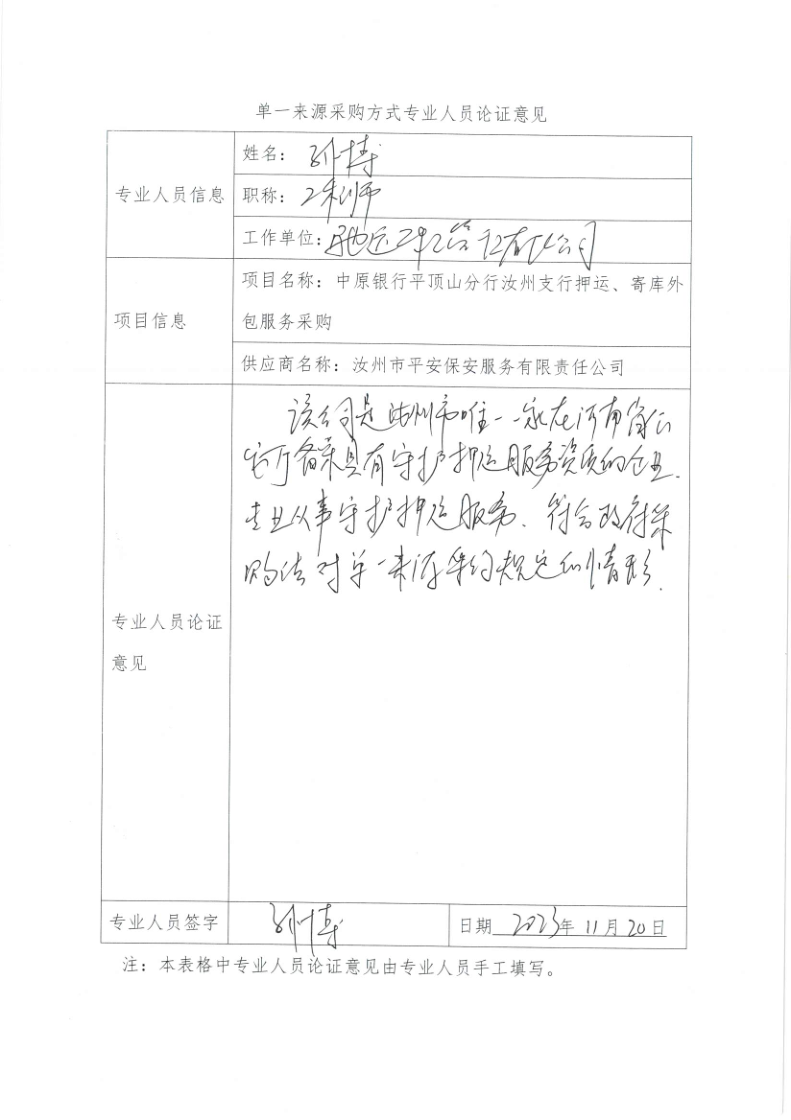 单一来源采购方式专业人员论证意见
专业人员信息
姓名：孙博
职称：工程师
工作单位：驰远工程管理有限公司
项目信息
项目名称：中原银行平顶山分行汝州支行押运、寄库外
包服务采购
供应商名称：汝州市平安保安服务有限责任公司
专业人员论证
意见
该公司是汝州市唯一一家在河南省公
安厅备案具有守护押运服务资质的企业.
专业从事守护押运服务. 符合政府采
购法对单一来源采购规定的情形.
专业人员签字
孙博
日期 2023年 11月 20日
注：本表格中专业人员论证意见由专业人员手工填写。